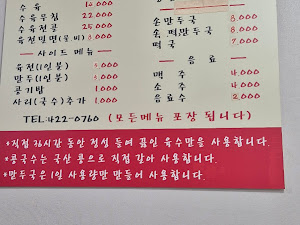 수육 10,000
수육무침 22,000
수육전골 25,000
육전밀면(물/비) 8,000
사이드 메뉴
육전(1인분) 5,000
만두(1인분) 3,000
공기밥 1,000
사리(국수)추가 1,000
손만두국 8,000
손떡/만두국 8,000
떡국 7,000
음료
맥주 4,000
소주 4,000
음료수 2,000
TEL:422-0760 (모든메뉴 포장 됩니다)
*직접 36시간 동안 정성 들여 끓인 육수만을 사용합니다.
*콩국수는 국산 콩으로 직접 갈아 사용합니다.
*만두국은 1일 사용량만 만들어 사용합니다.